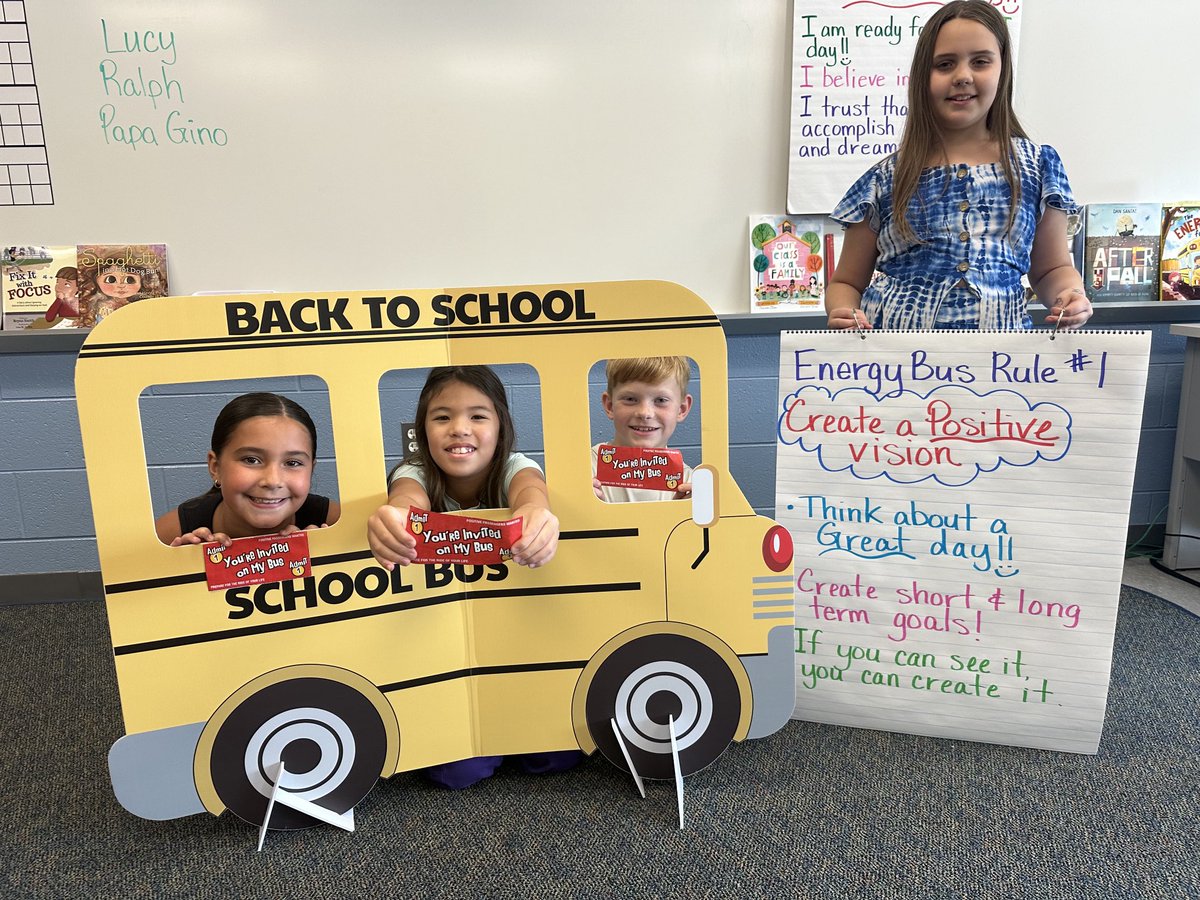 Lucy
Ralph
Papa Gino
I am ready fo
day!!
I believe in
I trust tha
accomplish
and dream
Fix It
with FOCUS
Spaghetti
in a Hot Dog Bun
OUR
CLASS
is a
FAMILY
DAN SANTAT
AFTER
FALL
THE
ENERGY
BACK TO SCHOOL
Admit
1
You're Invited
on My Bus
Admit
1
Admit
1
POSITIVE PASSENGERS WANTED
You're Invited
on My Bus
Admit
1
PREPARE FOR THE RIDE OF YOUR LIFE
You're Invited
on My Bus
Admit
1
PREPARE FOR THE RIDE OF YOUR LIFE
SCHOOL BUS
Energy Bus Rule #1
Create a Positive
vision
• Think about a
Great day!!
Create short & long
term goals!
If you can see it,
you can create it.